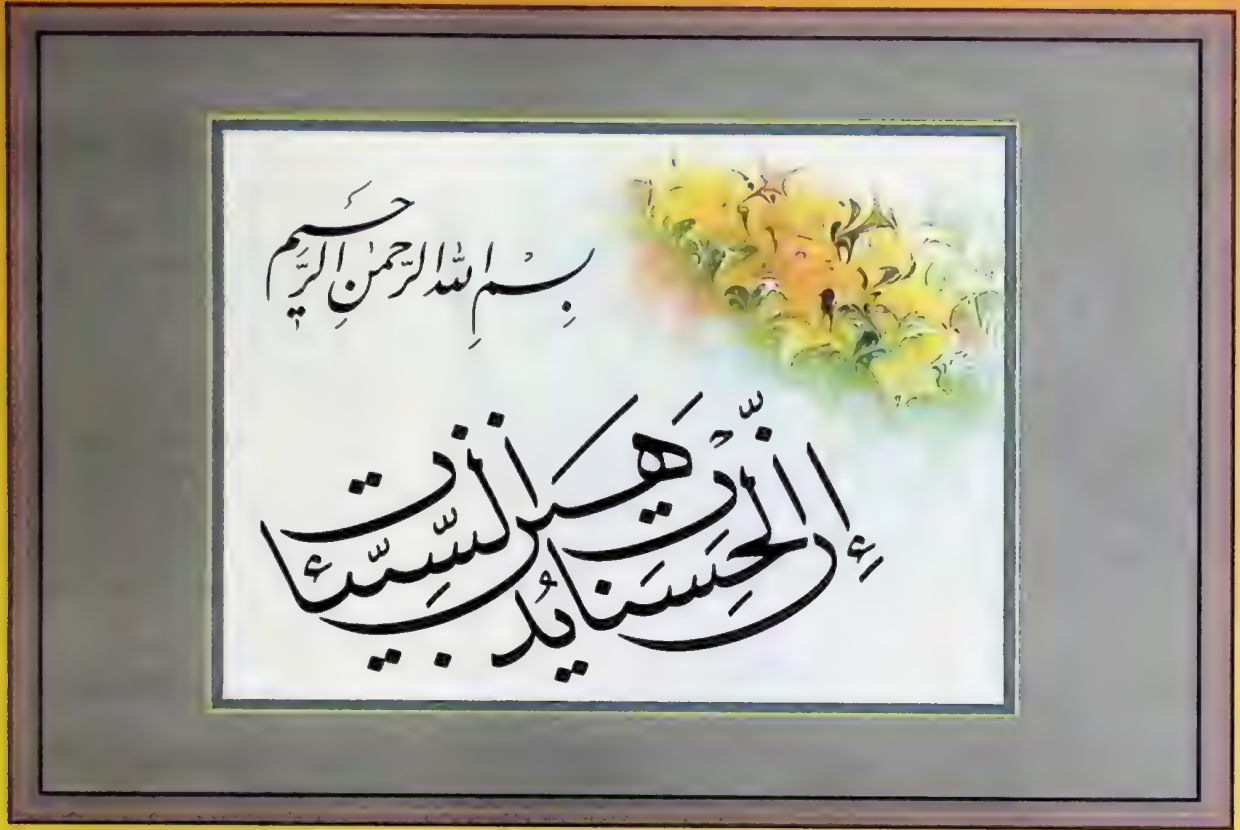 بِسْمِ اللّٰهِ الرَّحمٰنِ الرَّحيم
إِنَّ الْحَسَنات يُذهبن السَّيِّئات